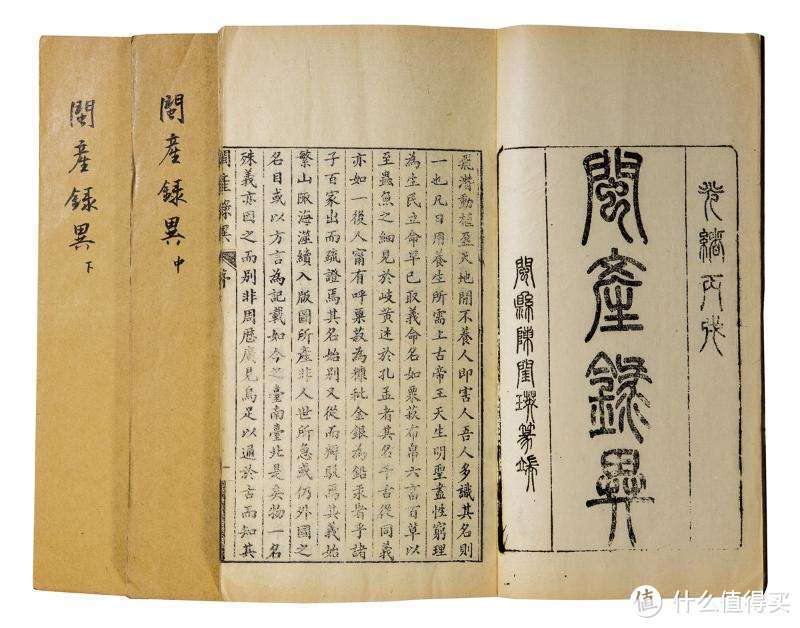 光緒丙戌
閩產錄異
閩縣陳篆耑
飛潛動植盈天地間不養人即害人吾人多識其名則
一也凡日用養生所需上古帝王天生明聖盡性窮理
為生民立命早已取義命名如粟菽布帛六畜百草以
至蟲魚之細見於岐黃述於孔孟者其名千古從同義
亦如一後人甯有呼粟菽為糠秕金銀為鉛汞者乎諸
子百家出而疏證焉其名始別又從而辯駁焉其義始
繁山陬海澨續入版圖所產非人世所急或仍外國之
名目或以方言為記載如今之臺南臺北是矣物一名
殊義亦因之而別非周歷廣見烏足以通於古而知其
閩產錄異 序 一
閩產錄異 中
閩產錄異 下
值 什么值得买